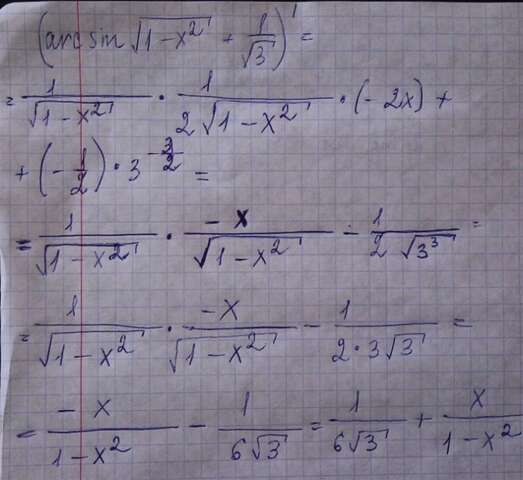 (arc sin √(1-x²) + 1/√3)' =
= 1/√(1-x²) · 1/(2√(1-x²)) · (-2x) +
+ (-1/2) · 3^(-3/2) =
= 1/√(1-x²) · -x/√(1-x²) - 1/(2√(3³)) =
= 1/√(1-x²) · -x/√(1-x²) - 1/(2·3√3) =
= -x/(1-x²) - 1/(6√3) = 1/(6√3) + x/(1-x²)